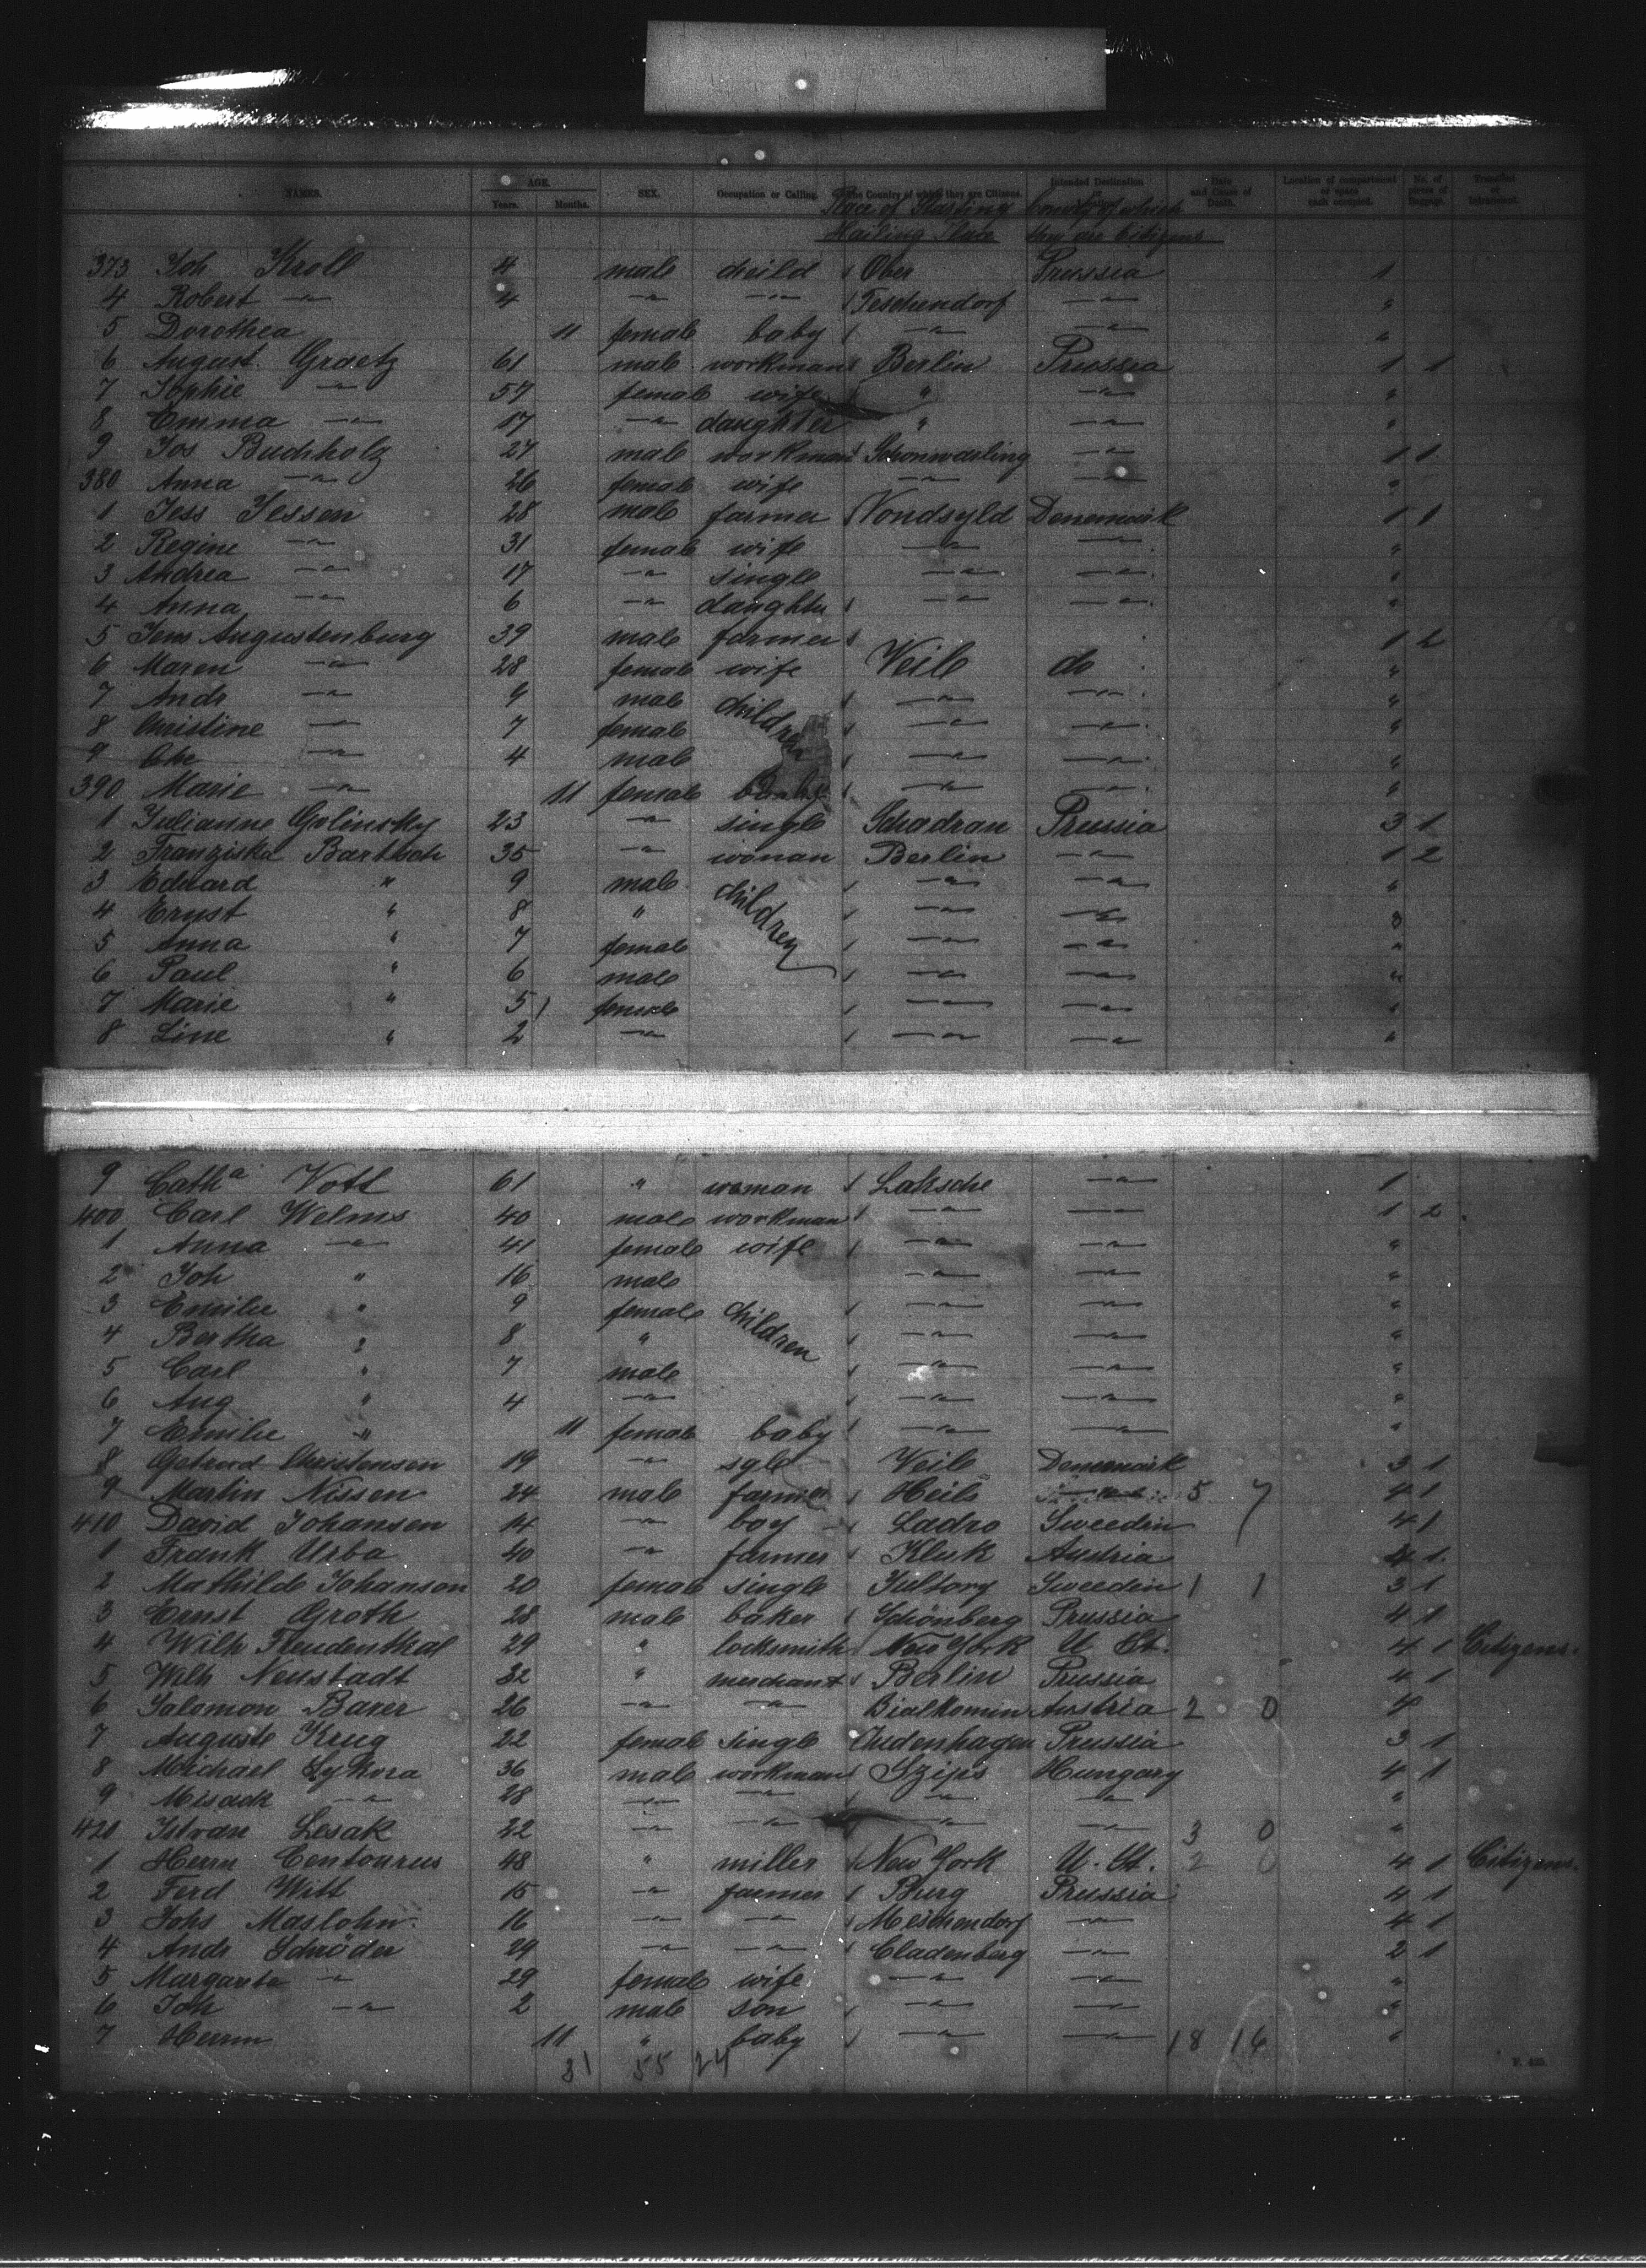 NAMES. AGE. Years. Months. SEX. Occupation or Calling. The Country of which they are Citizens. Intended Destination or Location. Date and Cause of Death. Location of compartment or space each occupied. No. of pieces of Baggage. Transient or Intransient.
Place of Starting County of which
Hailing Place they are Citizens
373 Joh Kroll 4 male cheild Ober Prussia 1
4 Robert —"— 4 —"— —"— Teschendorf —"— "
5 Dorothea 11 female baby —"— —"— "
6 August Graetz 61 male workman Berlin Prussia 1 1
7 Sophie —"— 57 female wife " —"— "
8 Emma —"— 17 —"— daughter " —"— "
9 Jos Buchholz 27 male workman Schonwarling —"— 1 1
380 Anna —"— 26 female wife —"— —"— "
1 Jess Jessen 28 male farmer Vondsyld Denemark 1 1
2 Regine —"— 31 female wife —"— —"— "
3 Andrea —"— 17 —"— single —"— —"— "
4 Anna —"— 6 —"— daughter —"— —"— "
5 Jens Augustenburg 39 male farmer 1 2
6 Maren —"— 28 female wife Veile do "
7 Andr —"— 9 male children —"— —"— "
8 Christine —"— 7 female —"— —"— "
9 Chr —"— 4 male —"— —"— "
390 Marie —"— 11 female baby —"— —"— "
1 Julianne Golinsky 23 —"— single Schadrau Prussia 3 1
2 Franziska Bartsch 35 —"— woman Berlin —"— 1 2
3 Eduard " 9 male children —"— —"— "
4 Ernst " 8 " —"— —"— "
5 Anna " 7 female —"— —"— "
6 Paul " 6 male —"— —"— "
7 Marie " 5 female —"— —"— "
8 Line " 2 —"— —"— —"— "
9 Catha Vott 61 " woman Laksche —"— 1
400 Carl Welms 40 male workman —"— —"— 1 2
1 Anna —"— 41 female wife —"— —"— "
2 Joh " 16 male —"— —"— "
3 Emilie " 9 female children —"— —"— "
4 Bertha " 8 " —"— —"— "
5 Carl " 7 male —"— —"— "
6 Aug " 4 —"— —"— —"— "
7 Emilie " 11 female baby —"— —"— "
8 Getrud Christensen 19 —"— sgle Veile Denemark 3 1
9 Martin Nissen 24 male farmer Heils —"— 5 7 4 1
410 David Johansen 14 —"— boy Ladro Sweeden 4 1
1 Frank Urba 40 —"— farmer Kluk Austria 4 1
2 Mathilde Johanson 20 female single Jultory Sweeden 1 1 3 1
3 Ernst Groth 28 male baker Schönberg Prussia 4 1
4 Wilh Freudenthal 29 " locksmith New York U St. 4 1 Citizens.
5 Wilh Neustadt 32 " merchant Berlin Prussia 4 1
6 Salomon Baxer 26 —"— —"— Bialkomin Austria 2 0 4
7 Auguste Krug 22 female single Rudenhagen Prussia 3 1
8 Michael Sykora 36 male workman Szips Hungary 4 1
9 Misack —"— 28 —"— —"— —"— —"— "
420 Istvan Lesak 22 —"— —"— —"— —"— 3 0 "
1 Herm Centourus 48 " miller New York U. St. 2 0 4 1 Citizens.
2 Ferd Witt 15 —"— farmer Burg Prussia 4 1
3 Johs Maslohn 16 —"— —"— Meschendorf —"— 4 1
4 Andr Schröder 29 —"— —"— Cladenburg —"— 2 1
5 Margareta —"— 29 female wife —"— —"— "
6 Joh —"— 2 male son —"— —"— "
7 Herrm 11 " baby —"— —"— 18 16 "
31 55 24